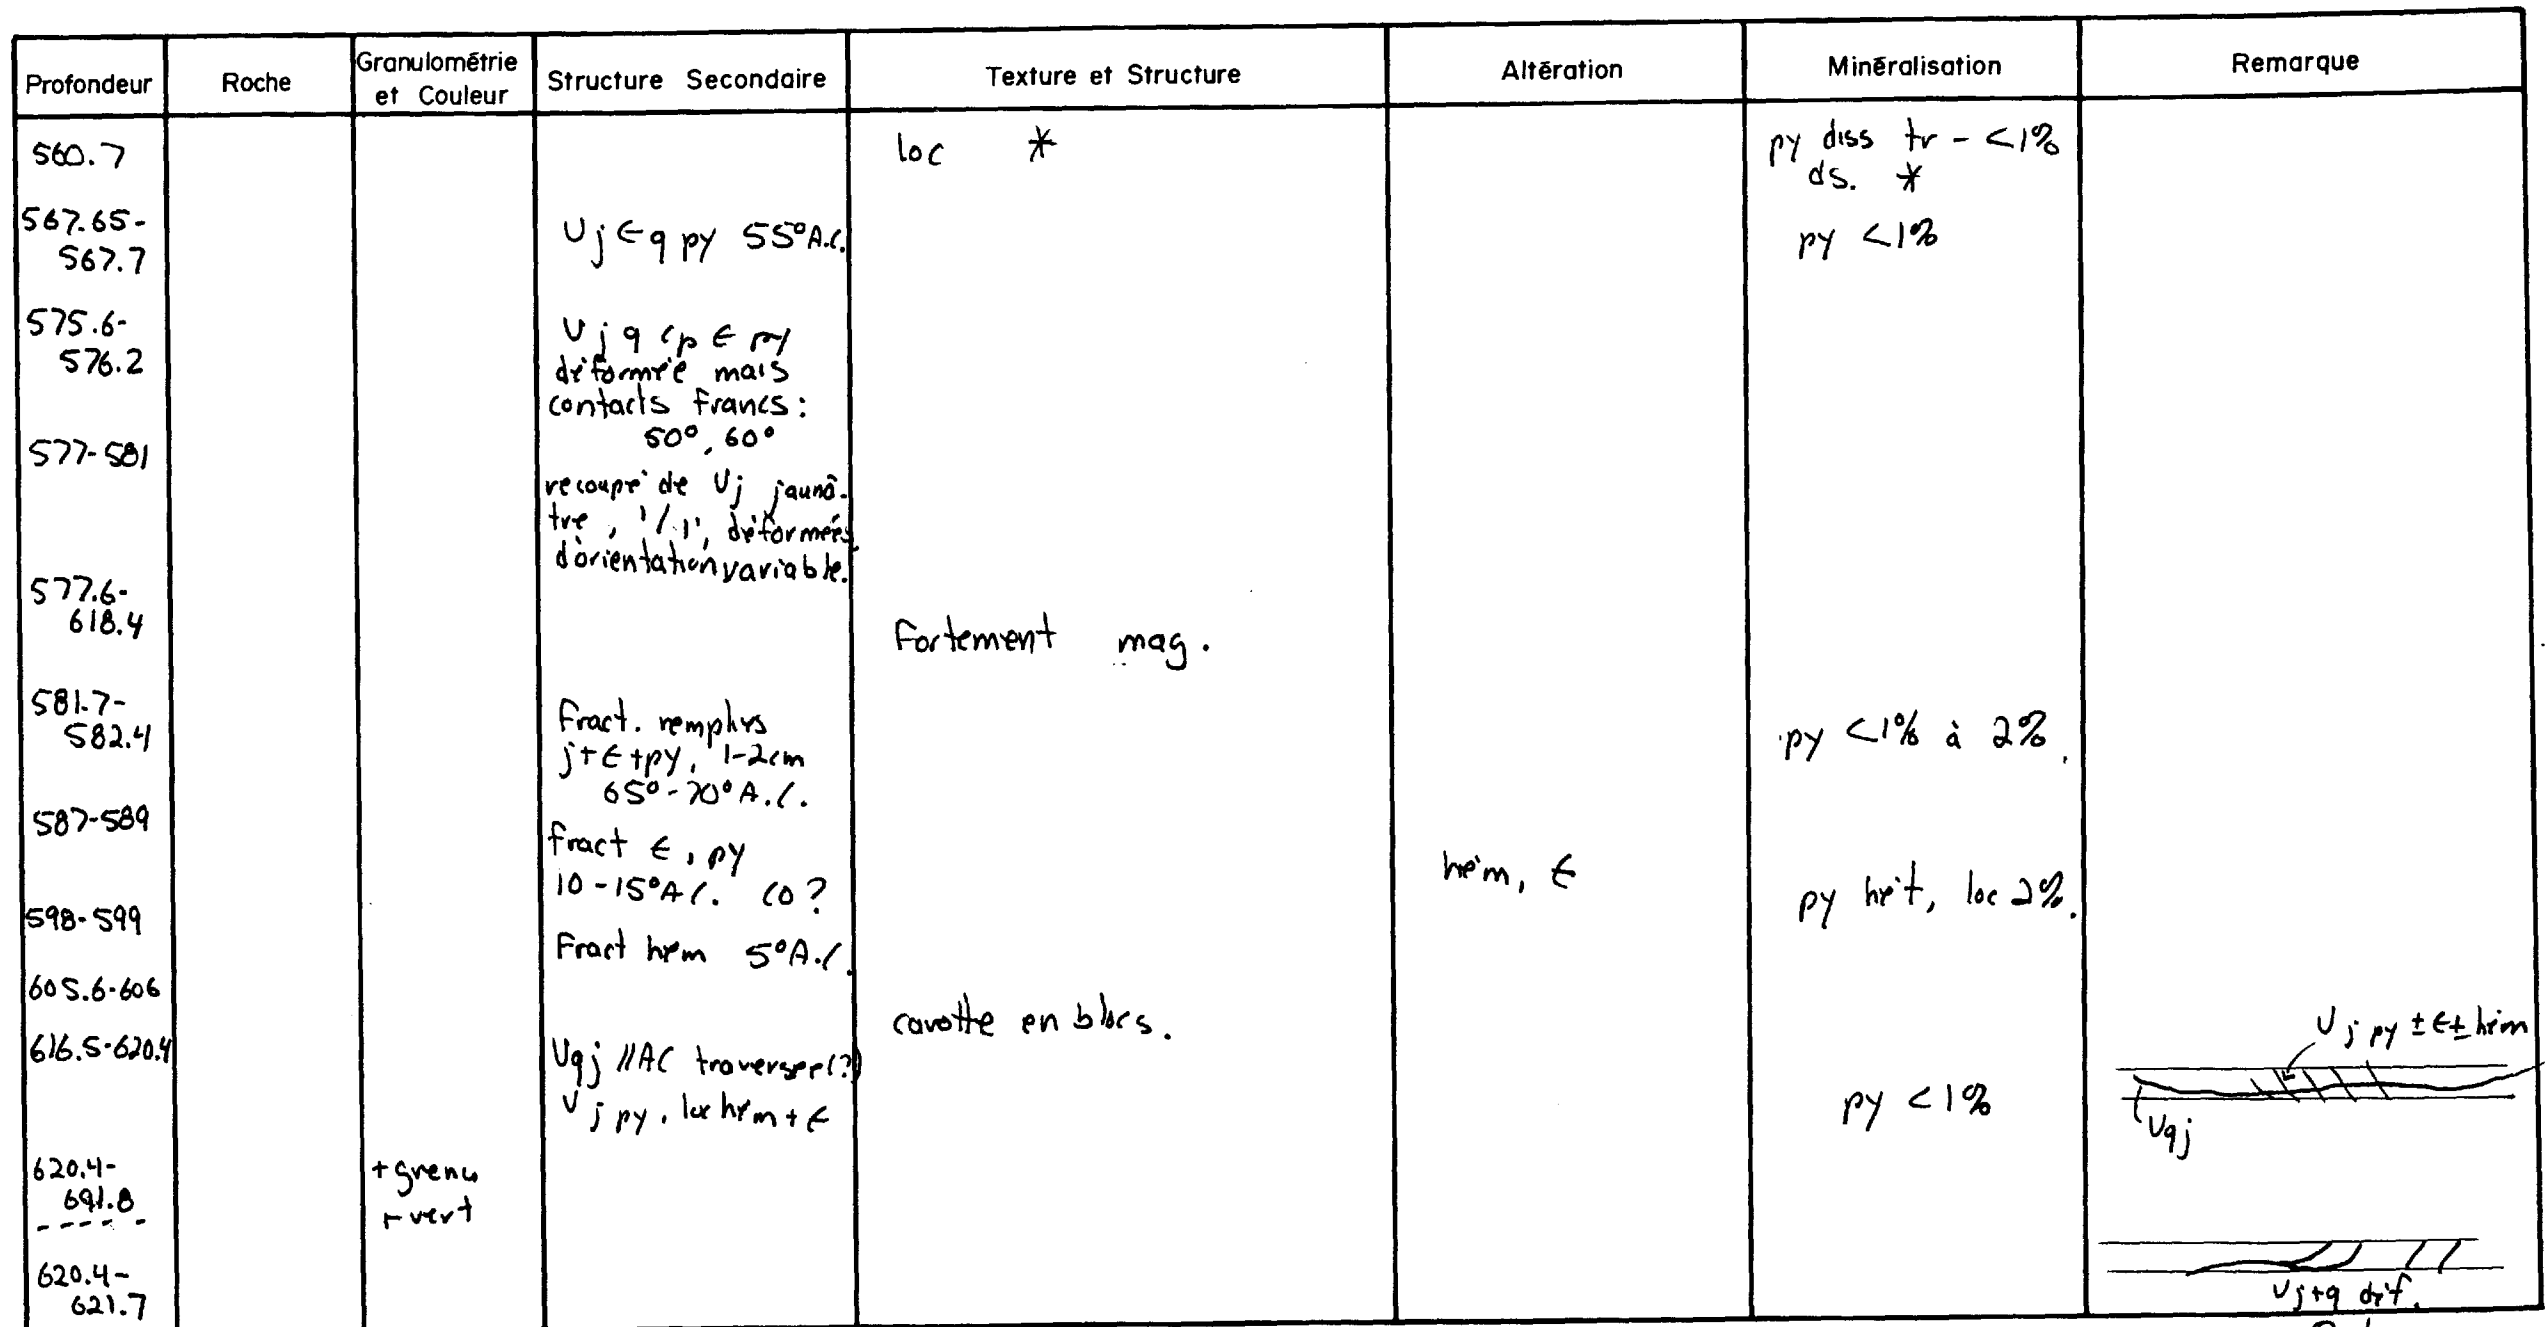 Profondeur Roche Granulométrie et Couleur Structure Secondaire Texture et Structure Altération Minéralisation Remarque
560.7 loc * py diss tr - <1%
ds. *
567.65-
567.7 Vj ϵ q py 55°A.C. py <1%
575.6-
576.2 Vj q cp ϵ py
déformée mais
contacts francs:
50°, 60°
577-581
recoupé de Vj jaunâ-
tre, déformées
d'orientation variable.
577.6-
618.4 Fortement mag.
581.7-
582.4 Fract. remplies
j+ϵ+py, 1-2cm py <1% à 2%.
65°-70°A.C.
587-589
fract ϵ, py
10-15°A.C. co? hém, ϵ py hét, loc 2%.
598-599
Fract hém 5°A.C.
605.6-606
carotte en blocs.
616.5-620.4 Vqj //AC traversée(?)
Vj py, loc hém + ϵ py <1%
Vj py ± ϵ ± hém
Vqj
620.4-
691.8 + grenu
+ vert
620.4-
621.7
Vj+q déf.